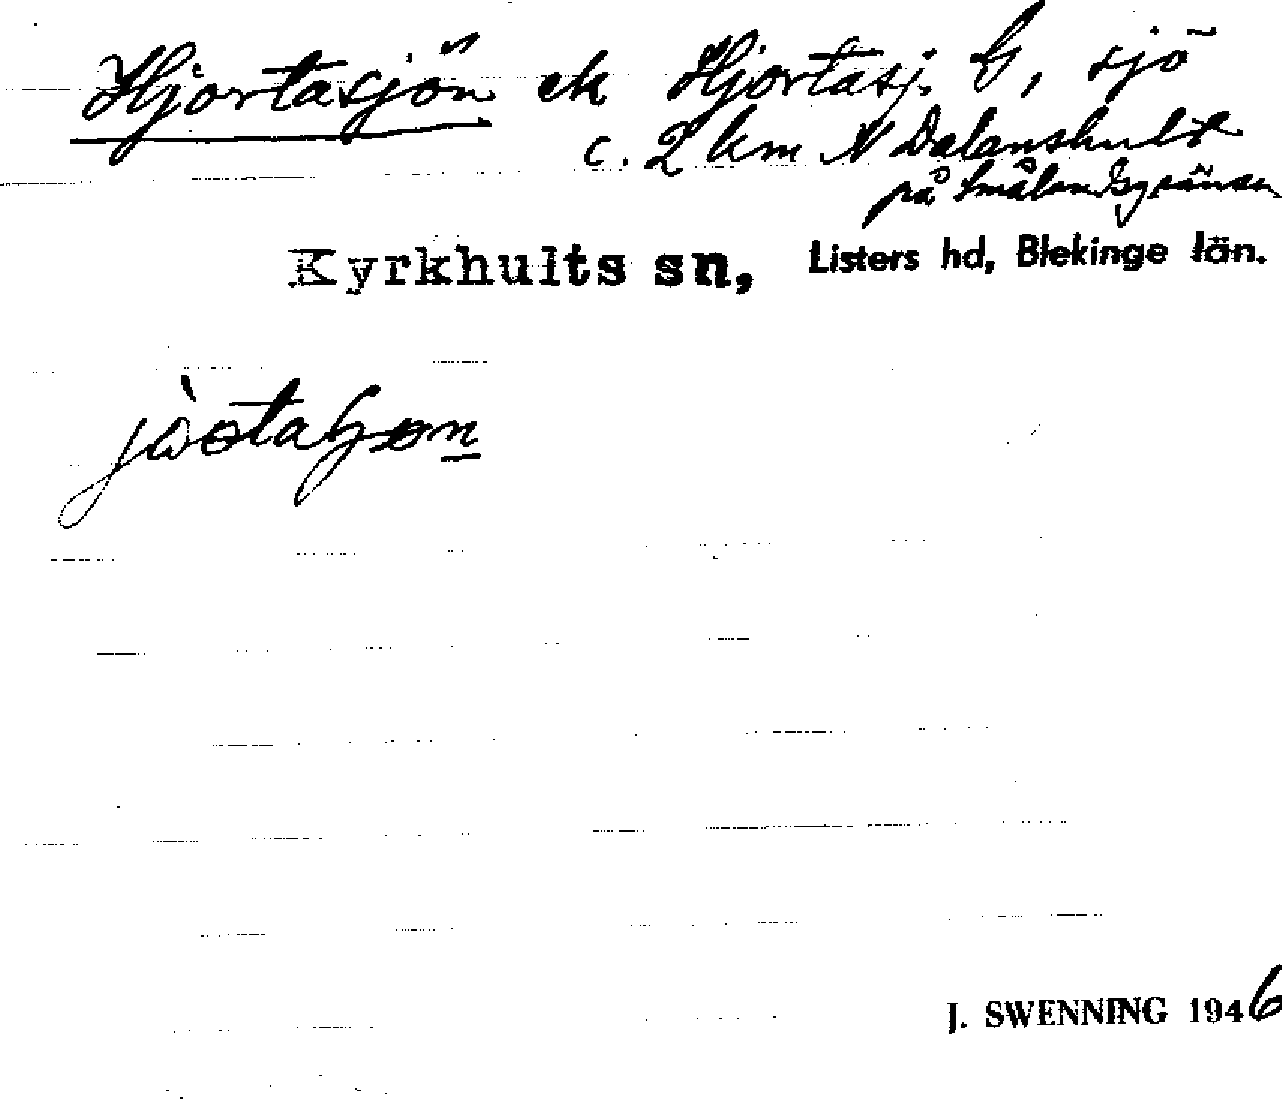 Hjortasjön ek Hjortasj. G, sjö
c. 2 km N Dalanshult
på Smålandsgränsen
Kyrkhults sn, Listers hd, Blekinge län.
J. SWENNING 1946